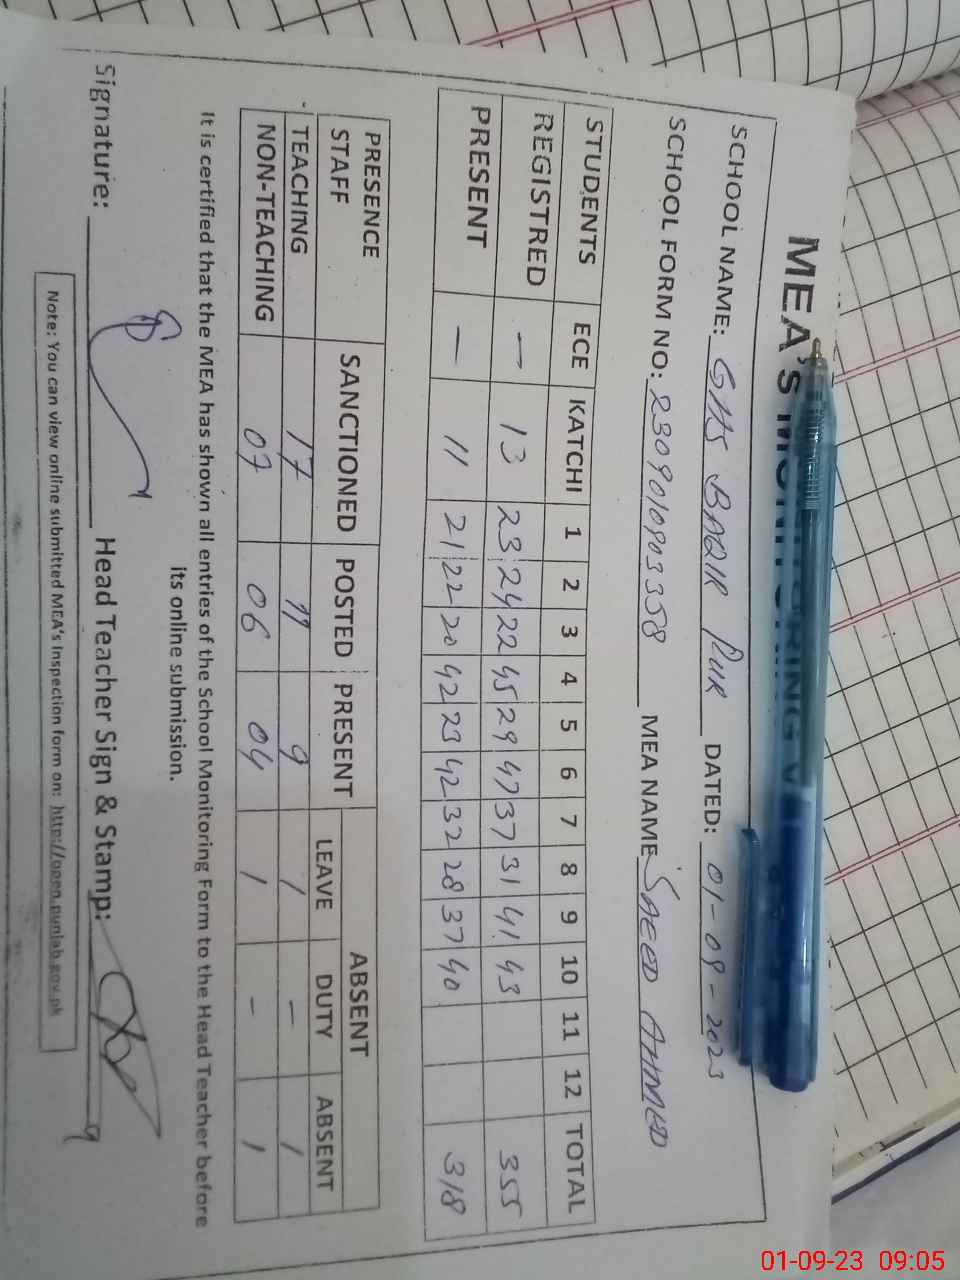 MEA'S MONITORING V
SCHOOL NAME: GHS BAQIR PUR DATED: 01-09-2023
SCHOOL FORM NO: 2309010803358 MEA NAME SAEED AHMED
STUDENTS ECE KATCHI 1 2 3 4 5 6 7 8 9 10 11 12 TOTAL
REGISTRED — 13 23 24 22 45 29 47 37 31 41 43 355
PRESENT — 11 21 22 20 42 23 42 32 28 37 40 318
PRESENCE SANCTIONED POSTED PRESENT ABSENT
STAFF LEAVE DUTY ABSENT
TEACHING 17 11 9 1 - 1
NON-TEACHING 07 06 04 1 - 1
It is certified that the MEA has shown all entries of the School Monitoring Form to the Head Teacher before
its online submission.
Signature: Head Teacher Sign & Stamp:
Note: You can view online submitted MEA's Inspection form on: http://open.punjab.gov.pk
01-09-23 09:05